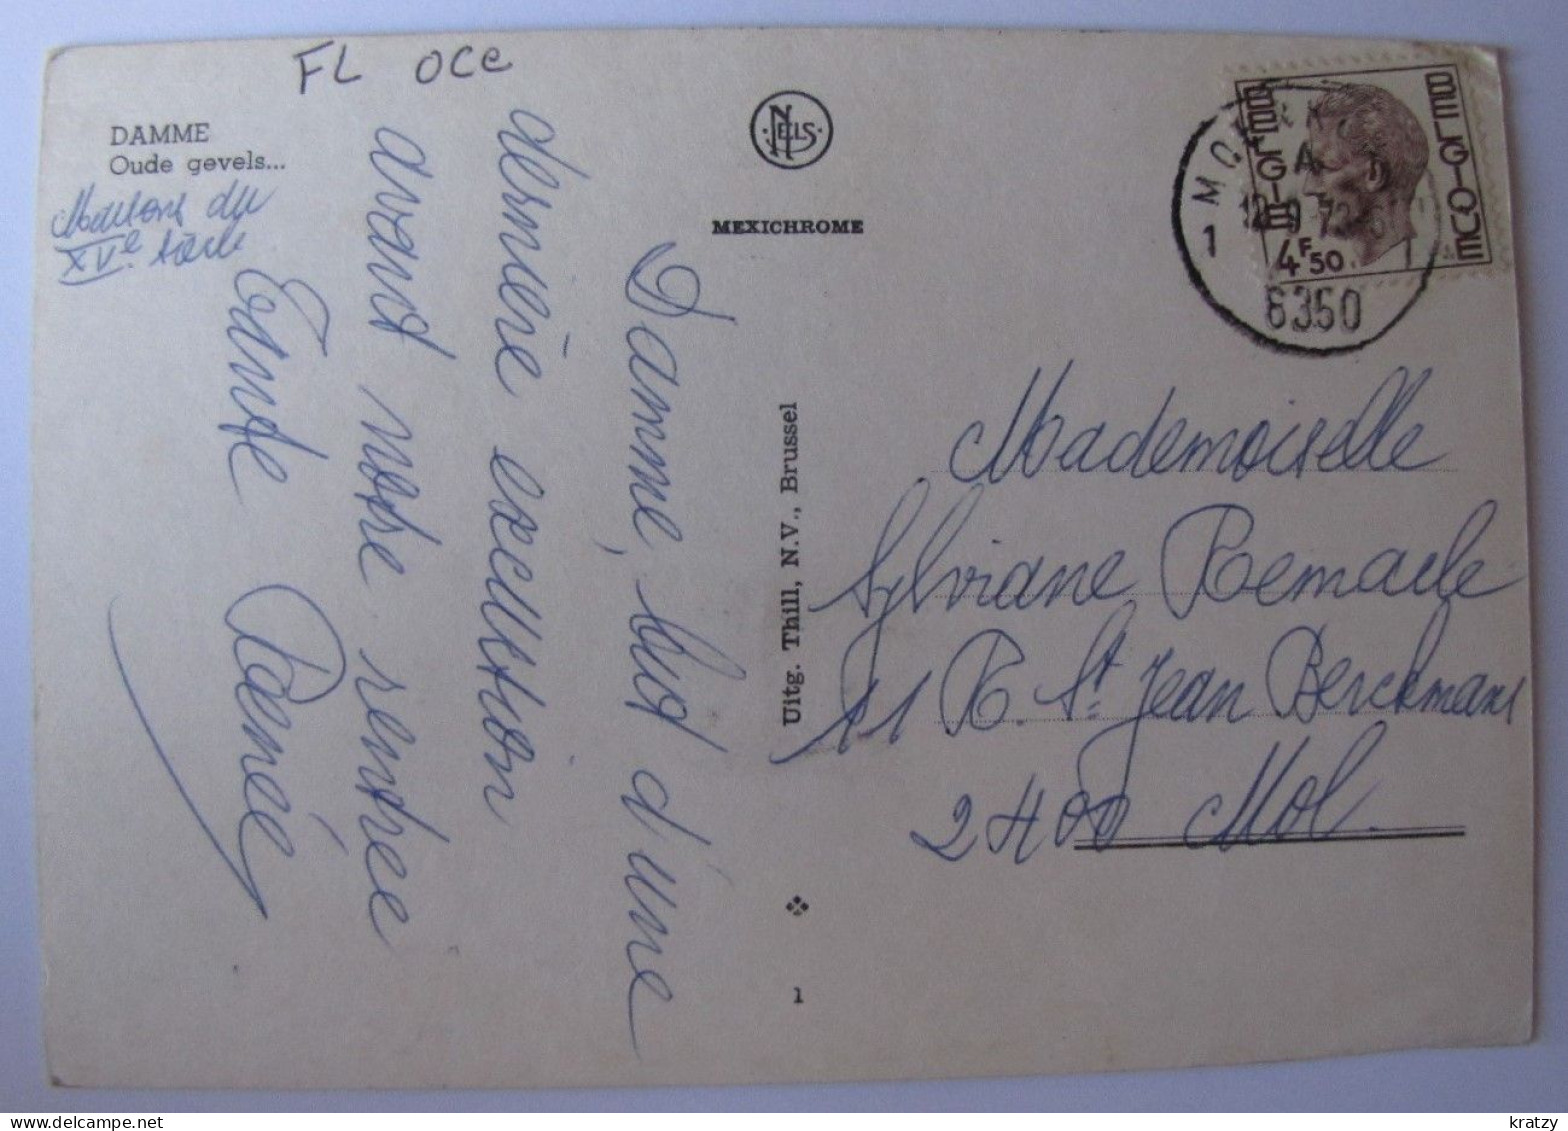 FL OCC
DAMME
Oude gevels...
Maisons du
XVe siècle
NELS
MEXICHROME
Damme, but d'une
dernière excursion
avant notre rentrée
Aimée
Uitg. Thill, N.V., Brussel
1
BELGIE
BELGIQUE
4F50
1 1
6350
Mademoiselle
Sylviane Remacle
11 R. St Jean Berckmans
2400 Mol.
kratzy